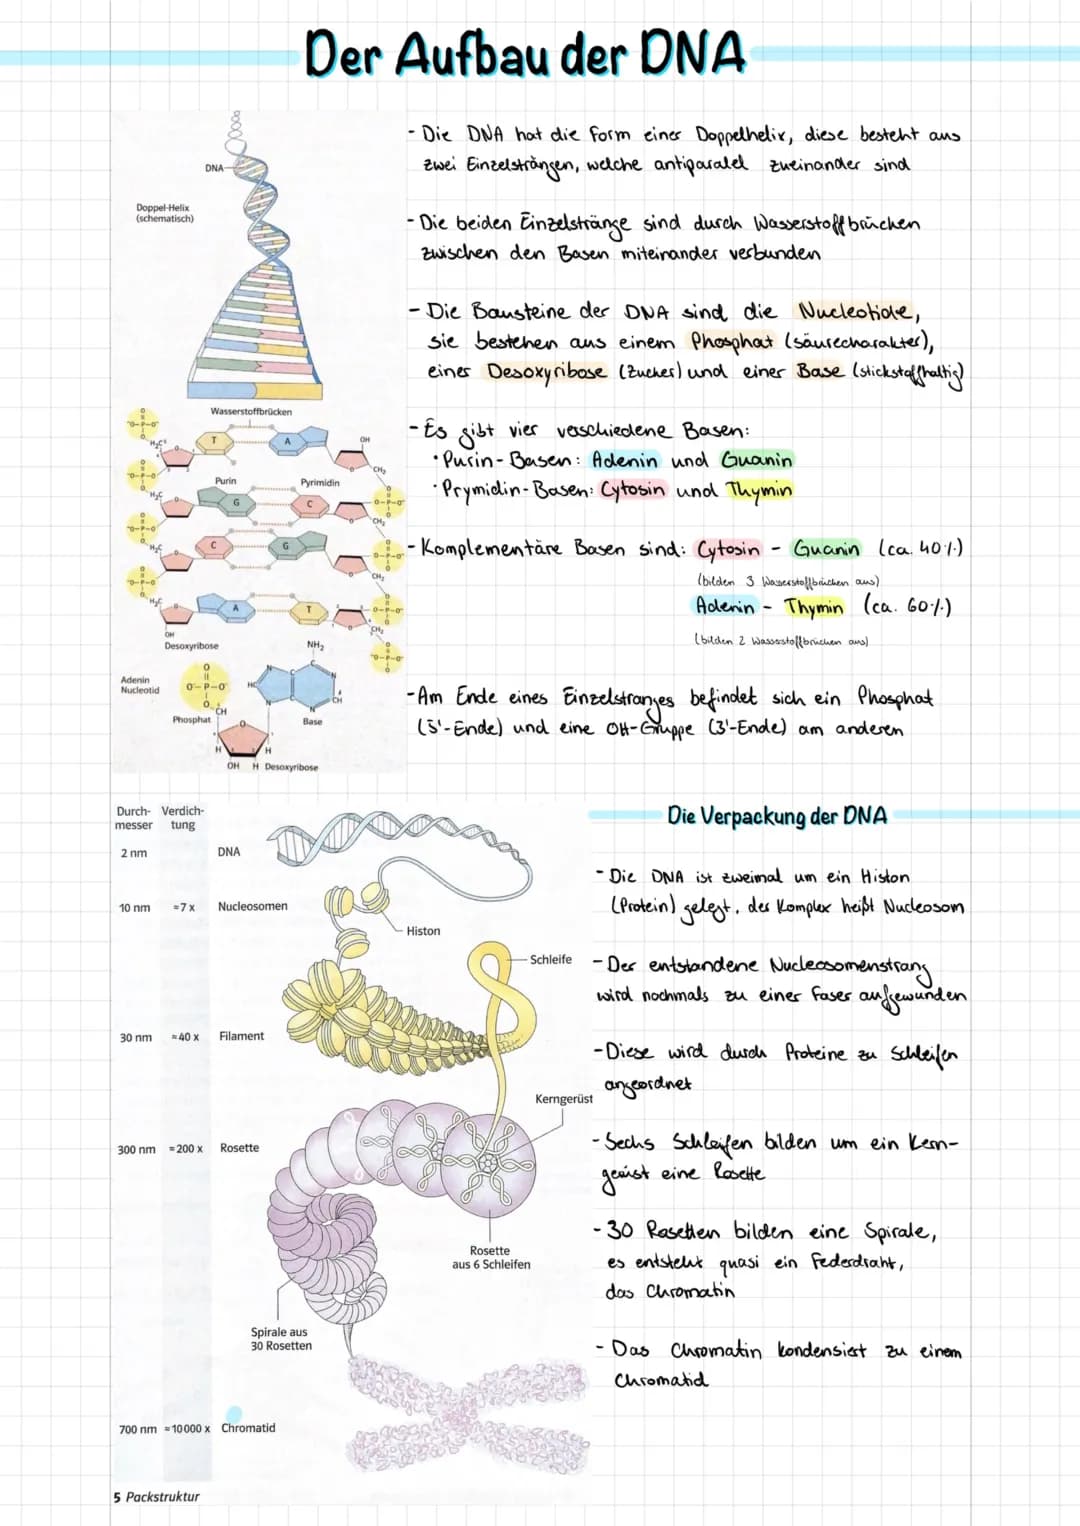 Der Aufbau der DNA
DNA
Doppel-Helix
(schematisch)
Wasserstoffbrücken
T
A
OH
Purin
Pyrimidin
G
C
C
G
A
T
OH
Desoxyribose
NH₂
Adenin
Nucleotid
Phosphat
Base
OH H Desoxyribose
- Die DNA hat die Form einer Doppelhelix, diese besteht aus
zwei Einzelsträngen, welche antiparalel zueinander sind
- Die beiden Einzelstränge sind durch Wasserstoffbrücken
zwischen den Basen miteinander verbunden
- Die Bausteine der DNA sind die Nucleotide,
sie bestehen aus einem Phosphat (säurecharakter),
einer Desoxyribose (Zucker) und einer Base (stickstoffhaltig)
- Es gibt vier verschiedene Basen:
• Purin-Basen: Adenin und Guanin
• Prymidin-Basen: Cytosin und Thymin
- Komplementäre Basen sind: Cytosin - Guanin (ca. 40%)
(bilden 3 Wasserstoffbrücken aus)
Adenin - Thymin (ca. 60%)
(bilden 2 Wasserstoffbrücken aus)
- Am Ende eines Einzelstranges befindet sich ein Phosphat
(5'-Ende) und eine OH-Gruppe (3'-Ende) am anderen
Durch- Verdich-
messer tung
2 nm DNA
10 nm ≈7 x Nucleosomen
Histon
Schleife
30 nm ≈40 x Filament
Kerngerüst
300 nm ≈200 x Rosette
Rosette
aus 6 Schleifen
Spirale aus
30 Rosetten
700 nm ≈10000 x Chromatid
5 Packstruktur
Die Verpackung der DNA
- Die DNA ist zweimal um ein Histon
(Protein) gelegt, der Komplex heißt Nucleosom
- Der entstandene Nucleosomenstrang
wird nochmals zu einer Faser aufgewunden
- Diese wird durch Proteine zu Schleifen
angeordnet
- Sechs Schleifen bilden um ein Kern-
gerüst eine Rosette
- 30 Rosetten bilden eine Spirale,
es entsteht quasi ein Federdraht,
das Chromatin
- Das Chromatin kondensiert zu einem
Chromatid